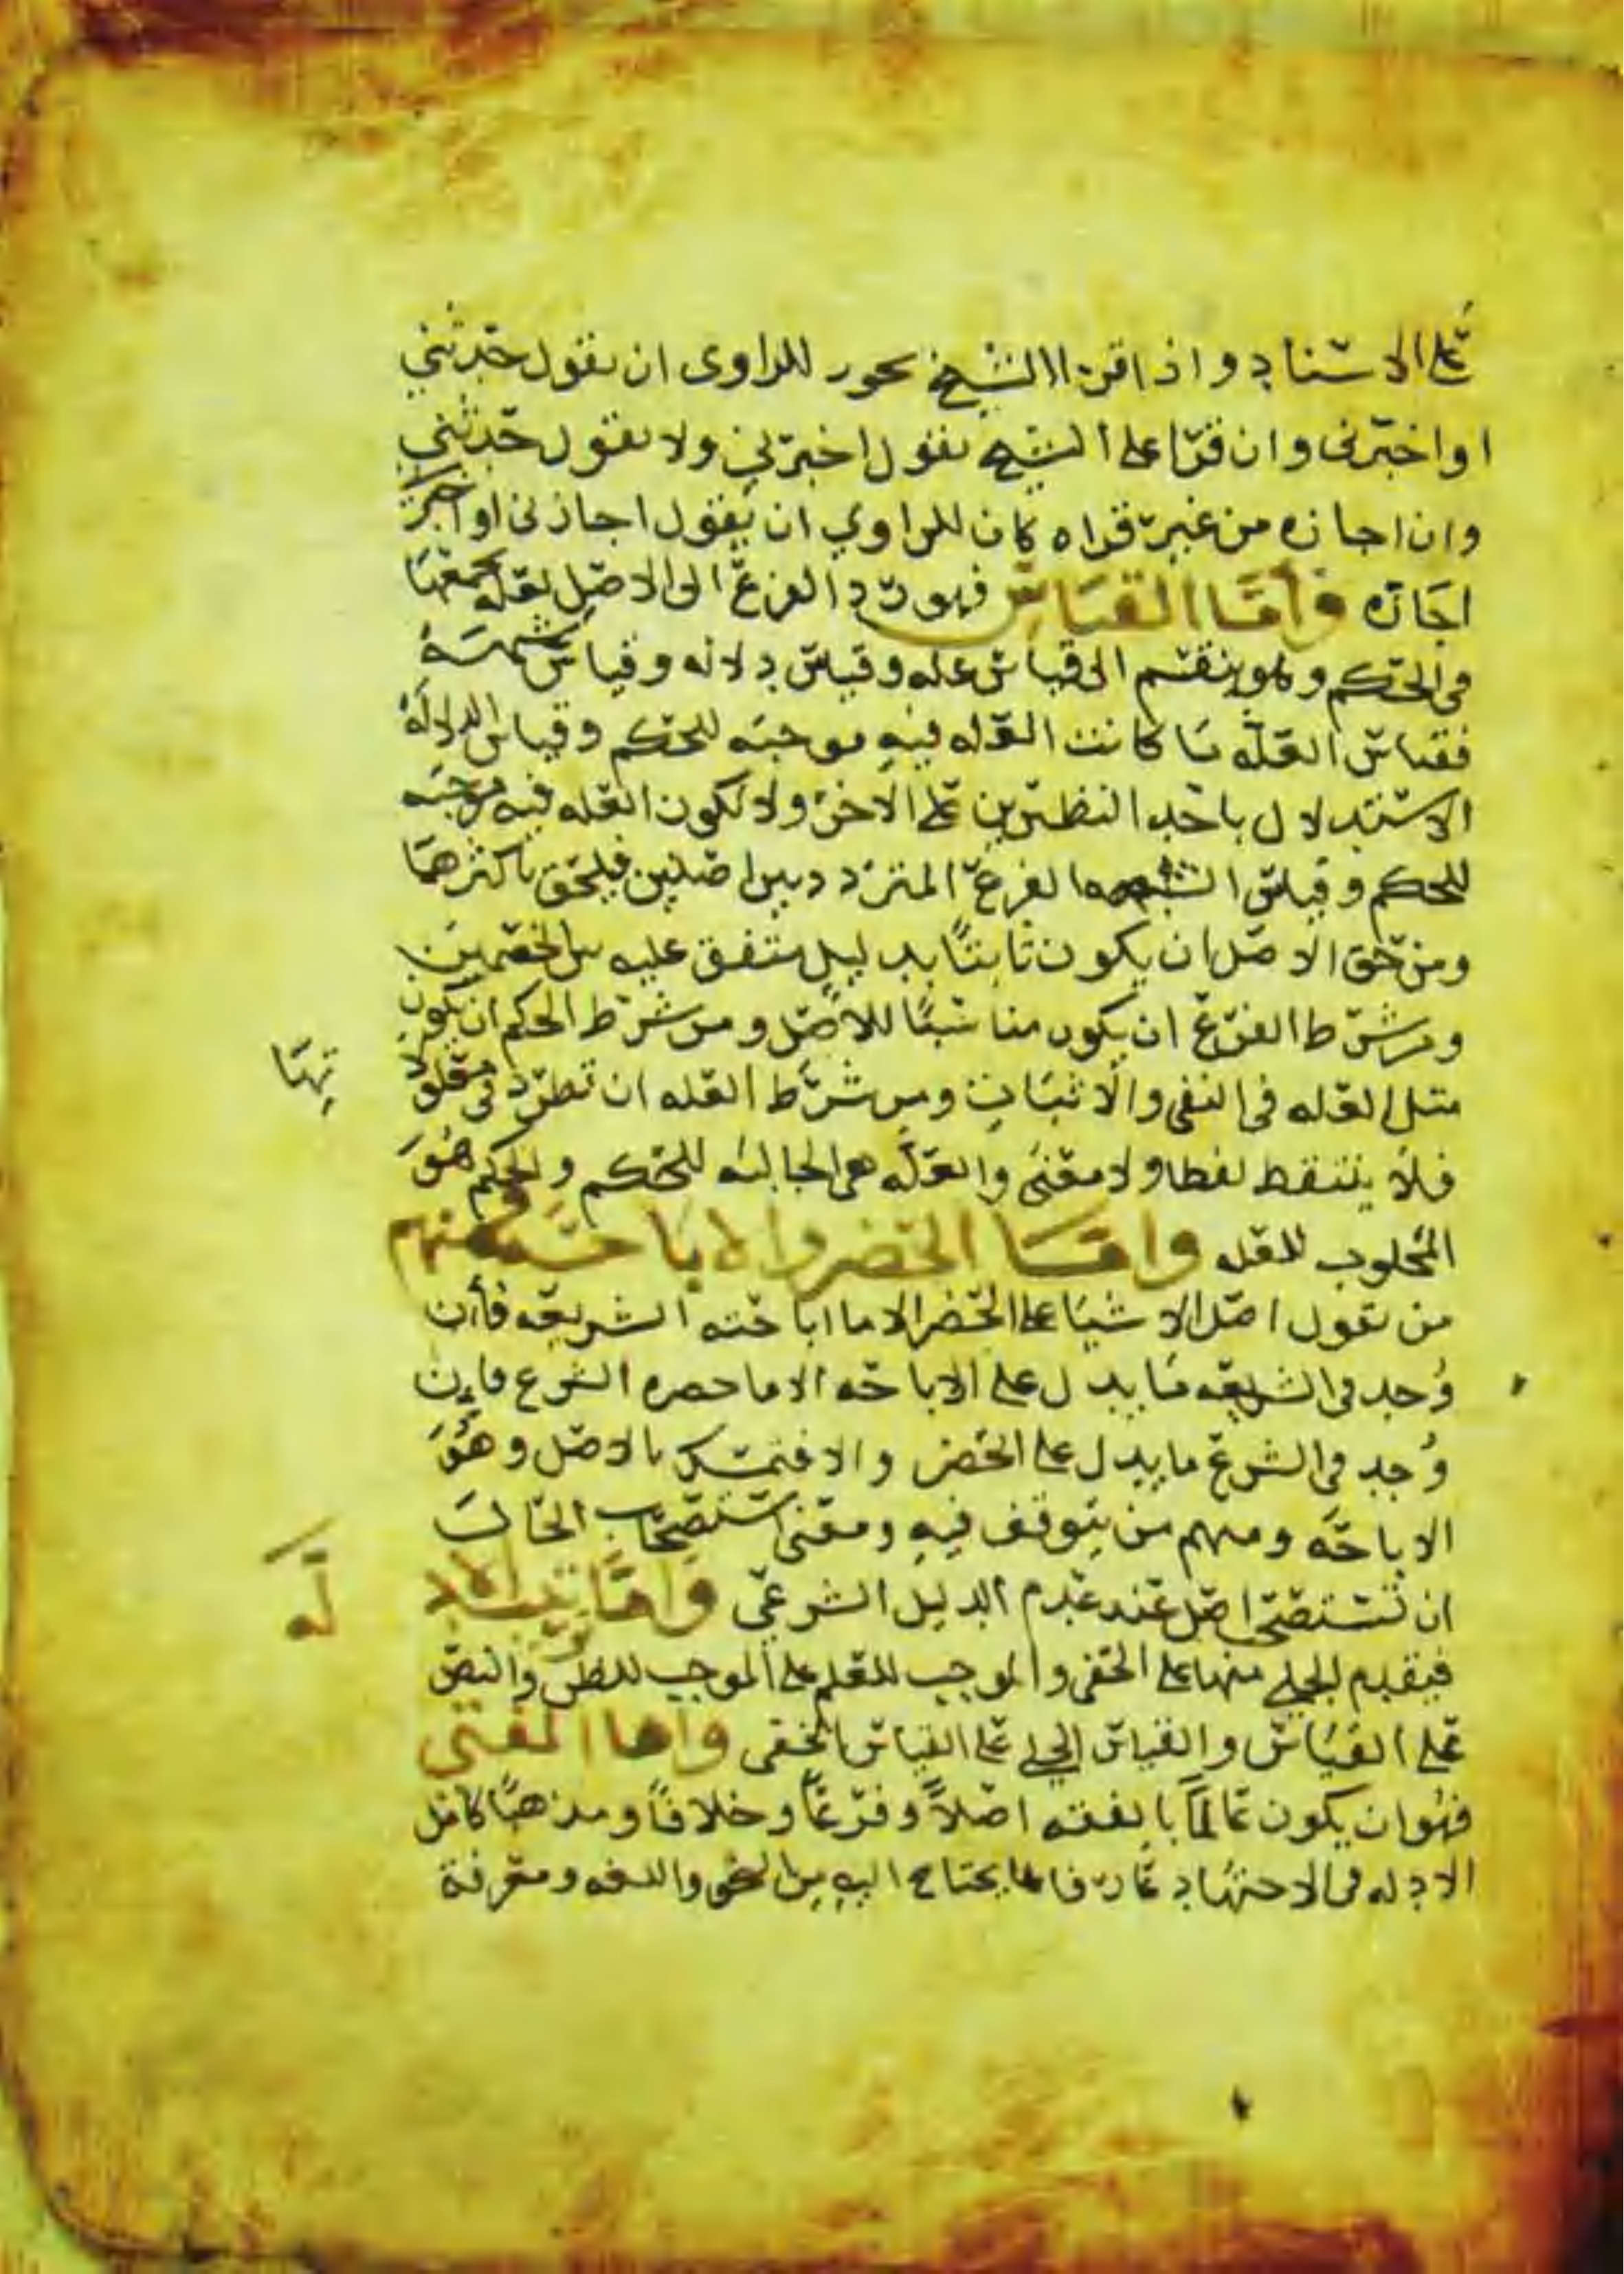 على الاسناد واذا قرا الشيخ يجوز للراوى ان يقول حدثني
او اخبرني وان قرا على الشيخ يقول اخبرني ولا يقول حدثني
وان اجازه من غير قراه كان للراوي ان يقول اجازني او اخبرني
اجازه واما القياس فهو رد الفرع الى الاصل لعله تجمعهما
في الحكم وهو ينقسم الى قياس عله وقياس دلاله وقياس شبه
فقياس العله ما كانت العله فيه موجبه للحكم وقياس الدلاله
الاستدلال باحد النظيرين على الاخر ولا تكون العله فيه موجبه
للحكم وقياس الشبه الفرع المتردد بين اصلين فيلحق باكثرهما
ومن حق الاصل ان يكون ثابتا بدليل متفق عليه بين الخصمين
ومن شرط الفرع ان يكون مناسبا للاصل ومن شرط الحكم ان يكون
مثل العله في النفي والاثبات ومن شرط العله ان تطرد في معلولا
تها
فلا ينتقط لفظا ولا معنى والعله هي الجالبه للحكم والحكم هو
المجلوب للعله واما الحضر والاباحه فمنهم
من يقول اصل الاشيا على الحضر الا ما اباحته الشريعه فان
وجد في الشريعه ما يدل على الاباحه الا ما حصره الشرع فان
وجد في الشرع ما يدل على الحضر والا فتمسك بالاصل وهو
الاباحه ومنهم من يتوقف فيه ومعنى استصحاب الحال
ان تستصحب اصل عند عدم الدليل الشرعي واما ترتيب الاد
له
فيقدم الجلي منها على الخفي والموجب للعلم على الموجب للظن والنص
على القياس والقياس الجلي على القياس الخفي واما المفتي
فهو ان يكون عالما بالفقه اصلا وفرعا وخلافا ومذهبا كامل
الادله في الاجتهاد عارفا بما يحتاج اليه من النحو واللغه ومعرفة